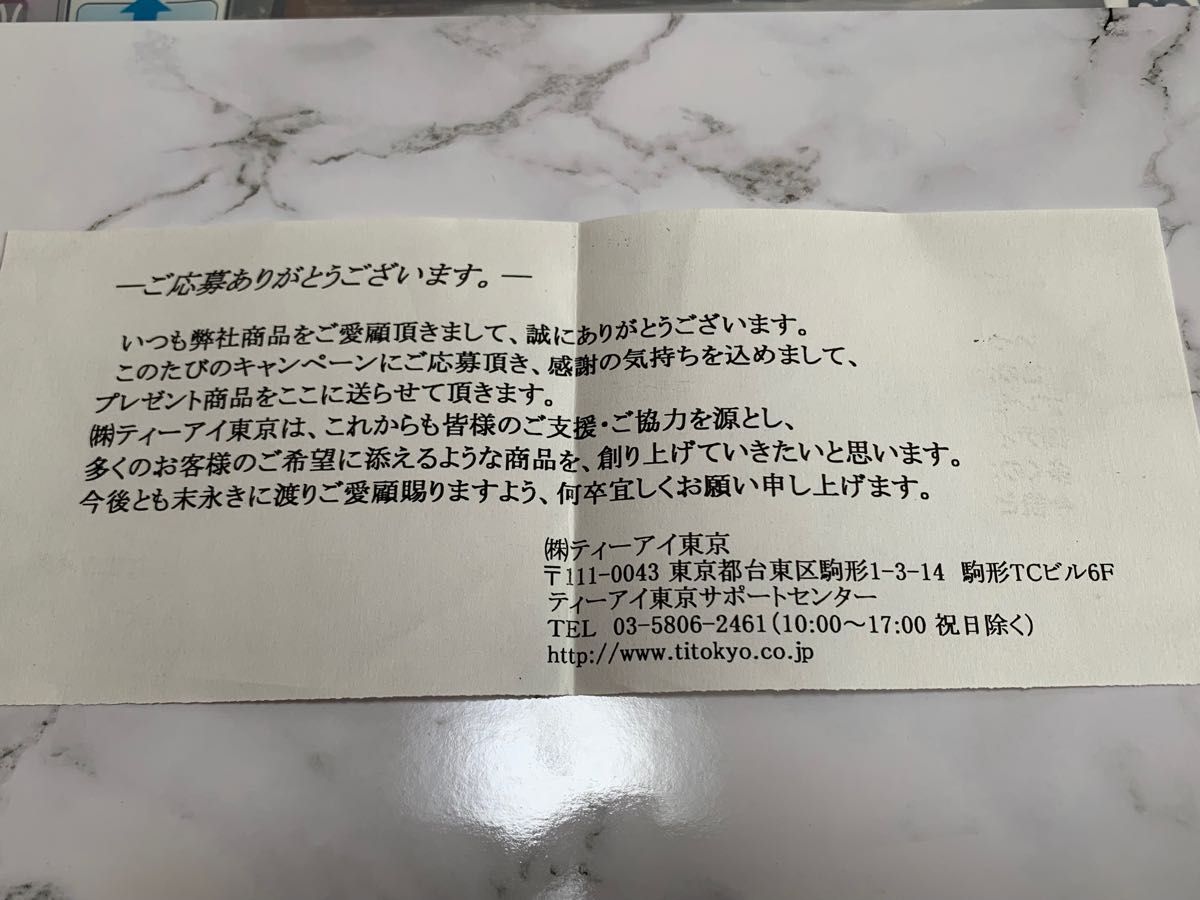 ―ご応募ありがとうございます。―
いつも弊社商品をご愛顧頂きまして、誠にありがとうございます。
このたびのキャンペーンにご応募頂き、感謝の気持ちを込めまして、
プレゼント商品をここに送らせて頂きます。
㈱ティーアイ東京は、これからも皆様のご支援・ご協力を源とし、
多くのお客様のご希望に添えるような商品を、創り上げていきたいと思います。
今後とも末永きに渡りご愛顧賜りますよう、何卒宜しくお願い申し上げます。
㈱ティーアイ東京
〒111-0043 東京都台東区駒形1-3-14 駒形TCビル6F
ティーアイ東京サポートセンター
TEL 03-5806-2461(10:00～17:00 祝日除く)
http://www.titokyo.co.jp